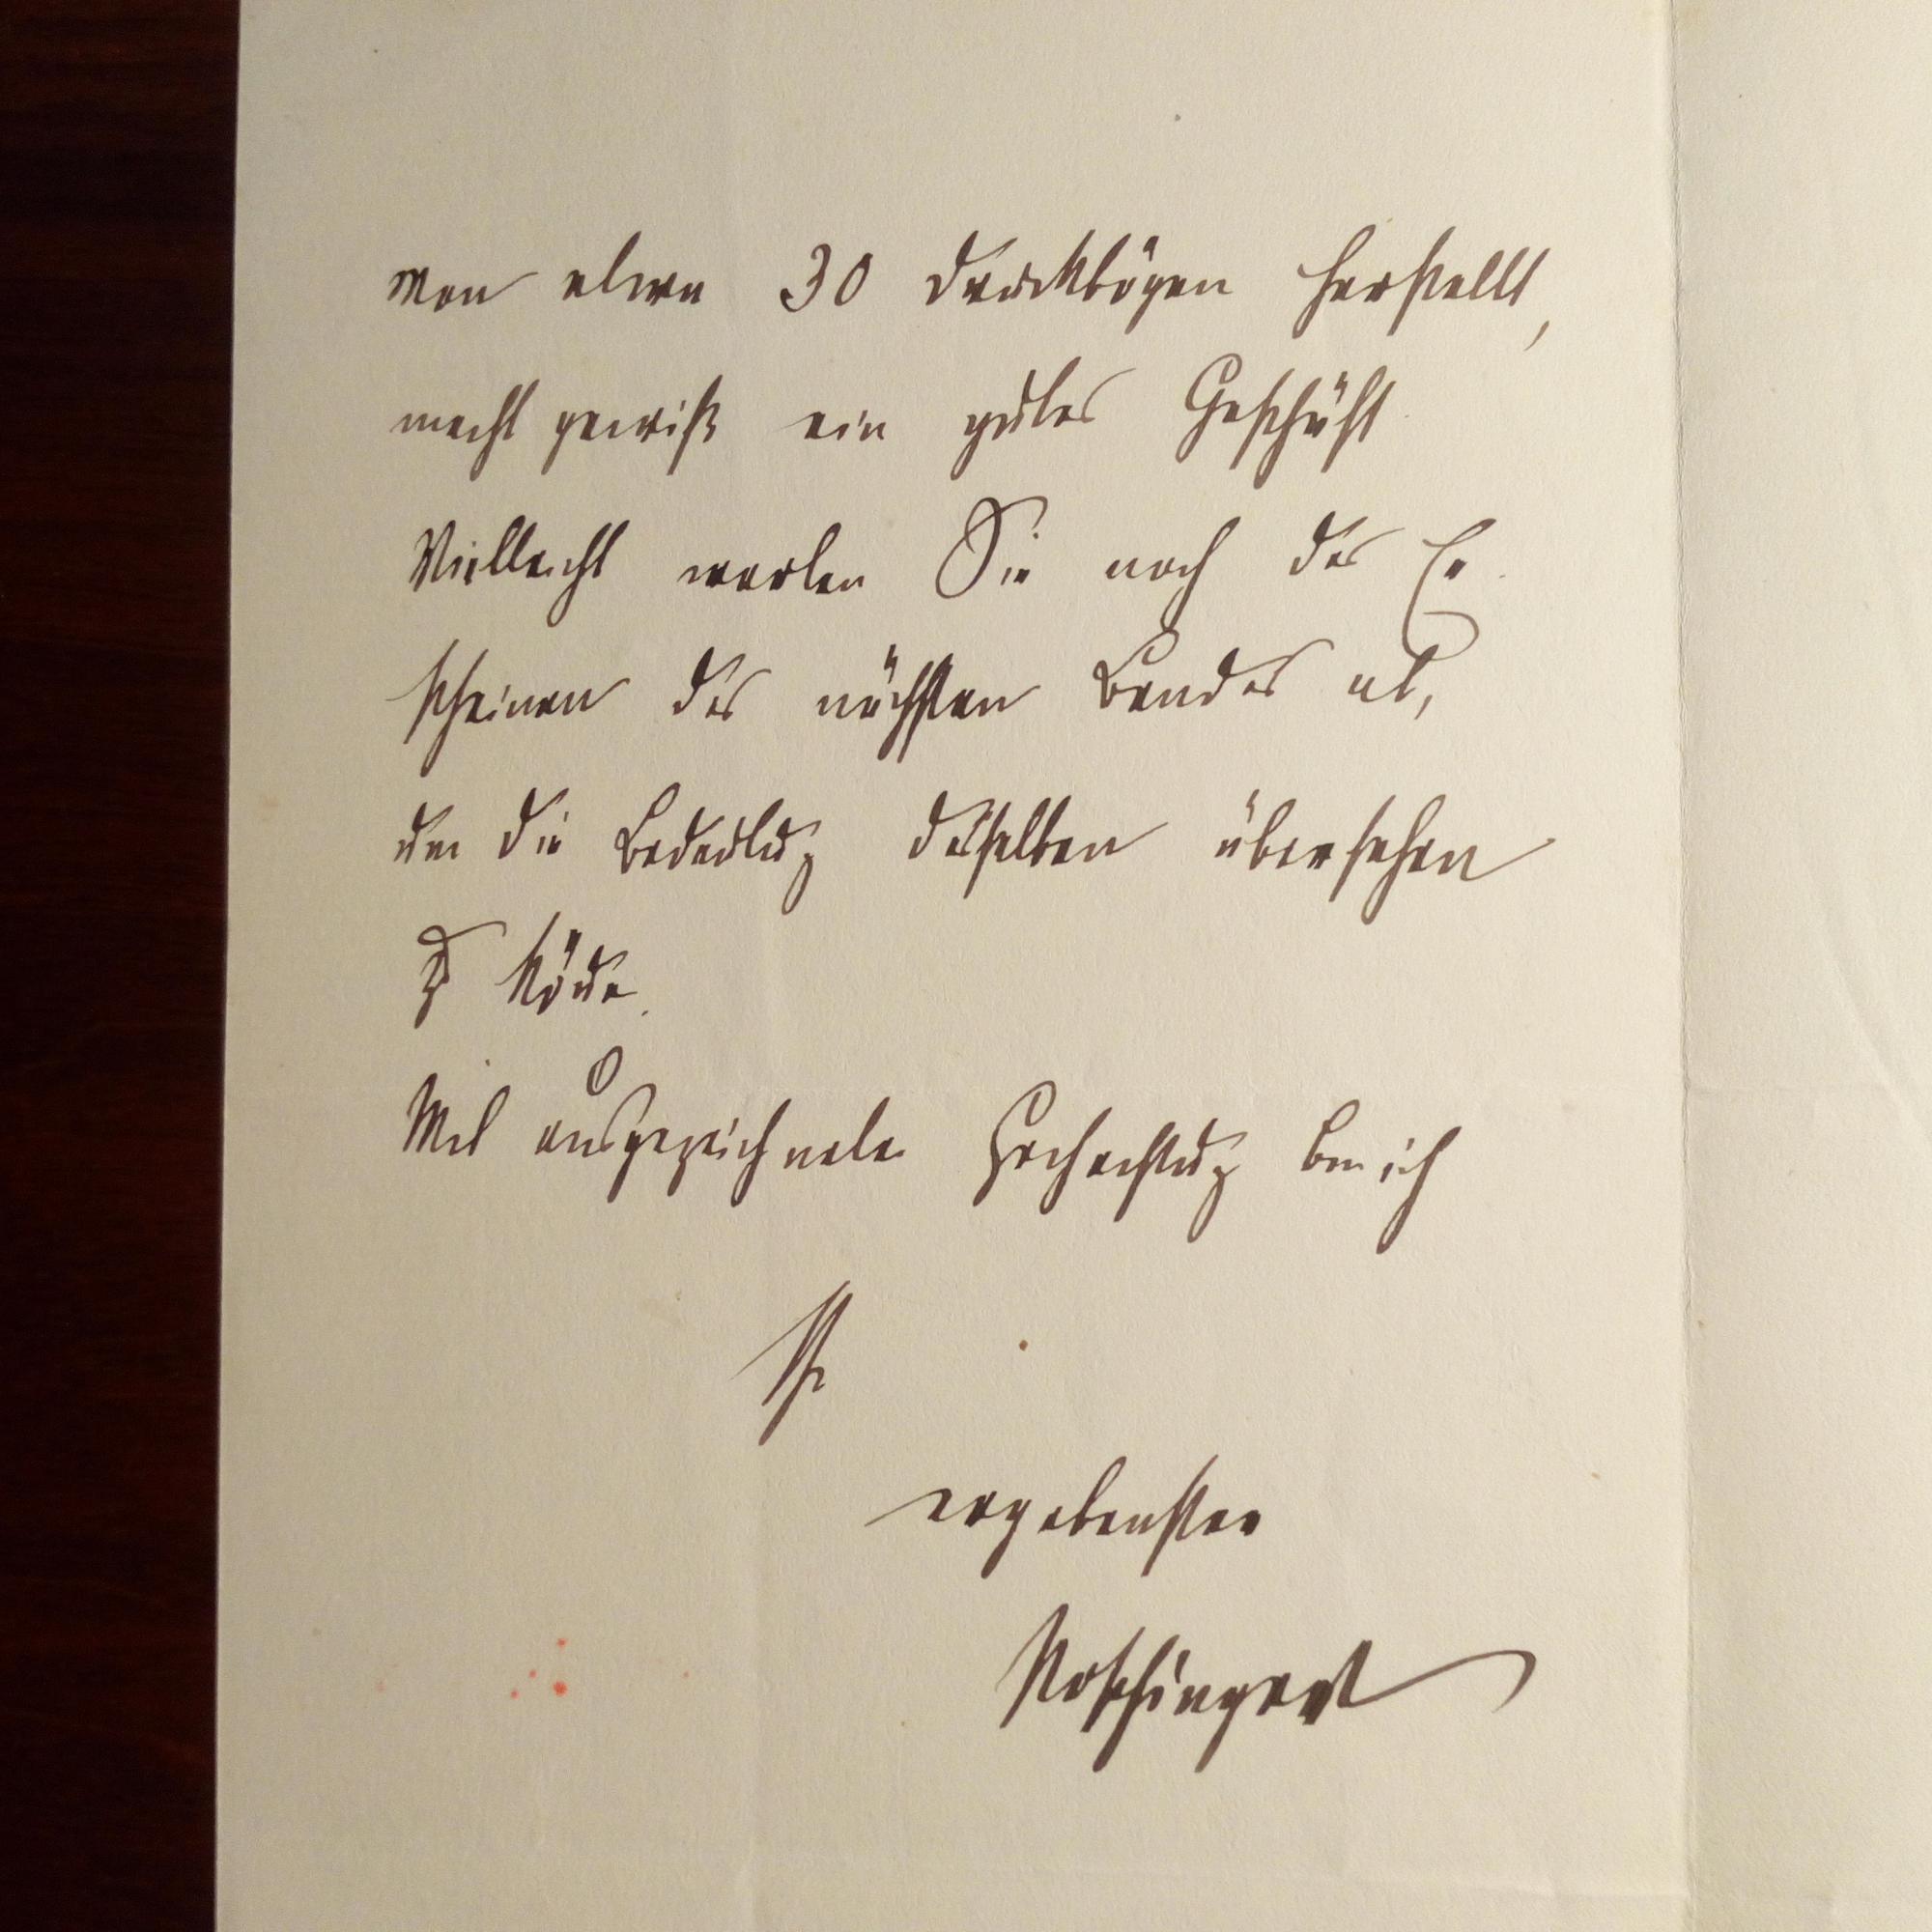 von etwa 30 Druckbögen herstellt,
macht gewiß ein gutes Geschäft.
Vielleicht warten Sie noch das Er
scheinen des nächsten Bandes ab,
um die Bedeutug desselben übersehen
zu köne.
Mit ausgezeichnete Hochachtug bin ich
Ihr
ergebenster
Poschinger